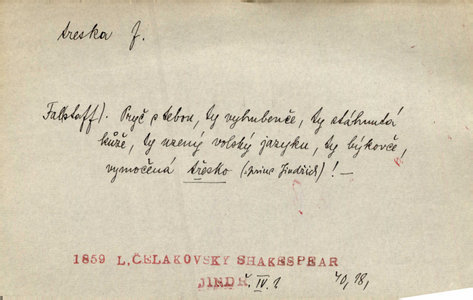 treska f.
Falstaff). Pryč s tebou, ty vyhubenče, ty stáhnutá
kůže, ty uzený volský jazyku, ty býkovče,
vymočená třesko (: princ Jindřich) ! —
1859 L. ČELAKOVSKÝ SHAKESPEAR
JINDŘ. IV. 1
40, 98,